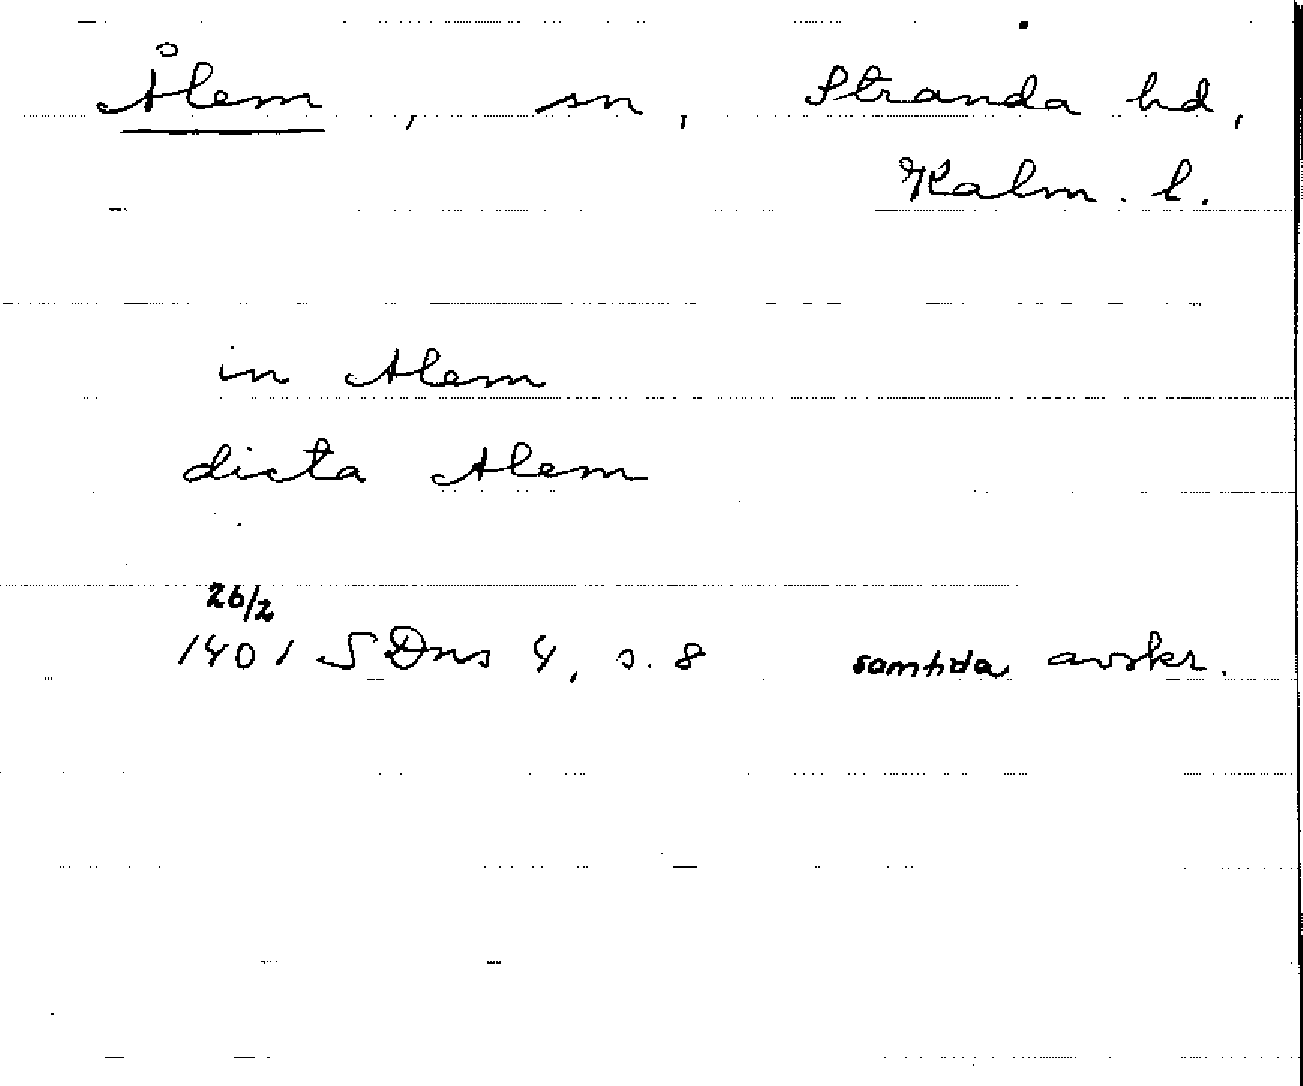 Ålem, sn, Stranda hd,
Kalm. l.
in Alem
dicta Alem
26/2
1401 SDns 4, s. 8 samtida avskr.